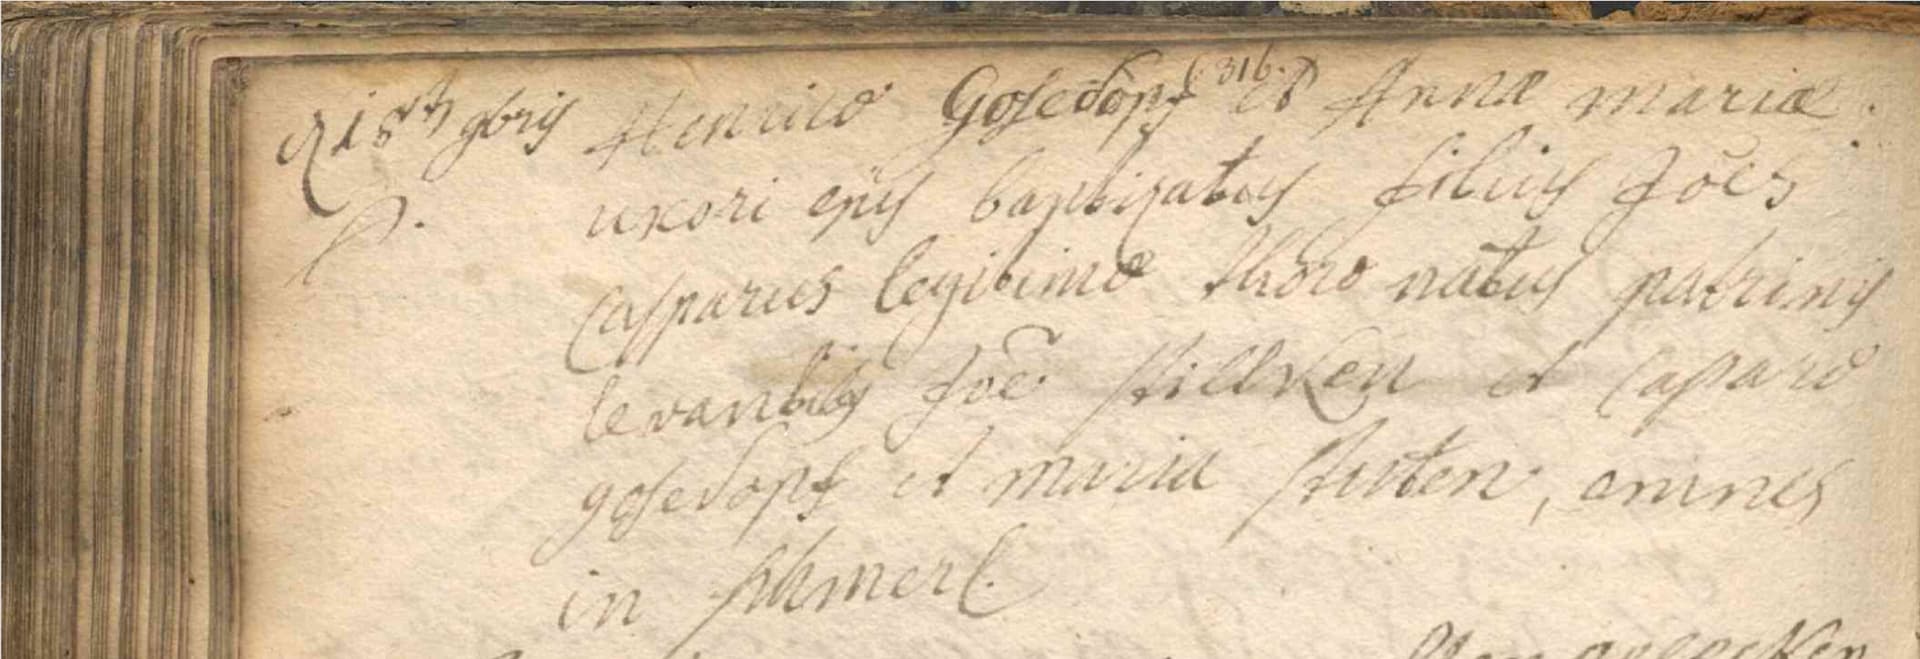 316.
18 9bris Henrico Gosedopf et Annæ mariæ
uxori ejus baptizatus filius Joes
Casparus legitimo thoro natus patrinis
levantibus Joe et Casparo
gosedopf et maria omnes
in